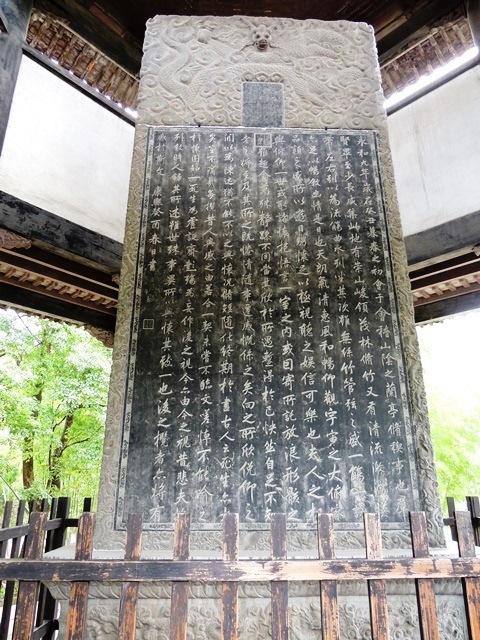 永和九年歲在癸丑暮春之初會于會稽山陰之蘭亭脩稧事也羣
賢畢至少長咸集此地有崇山峻領茂林脩竹又有清流激
帶左右引以為流觴曲水列坐其次雖無絲竹管弦之盛一觴一
亦足以暢敘幽情是日也天朗氣清惠風和暢仰觀宇宙之大俯
品類之盛所以遊目騁懷足以極視聽之娛信可樂也夫人之相
與俯仰一世或取諸懷抱悟言一室之內或因寄所託放浪形骸之
外雖趣舍萬殊靜躁不同當其欣於所遇蹔得於己快然自足不知
老之將至及其所之既惓情隨事遷感慨係之矣向之所欣俛仰之
間以為陳迹猶不能不以之興懷況脩短隨化終期於盡古人云死生亦大
矣豈不痛哉每攬昔人興感之由若合一契未嘗不臨文嗟悼不能喻之
於懷固知一死生為虛誕齊彭殤為妄作後之視今亦由今之視昔悲夫故
列敘時人錄其所述雖世殊事異所以興懷其致一也後之攬者亦將有
感於斯文 康熙癸酉春日書